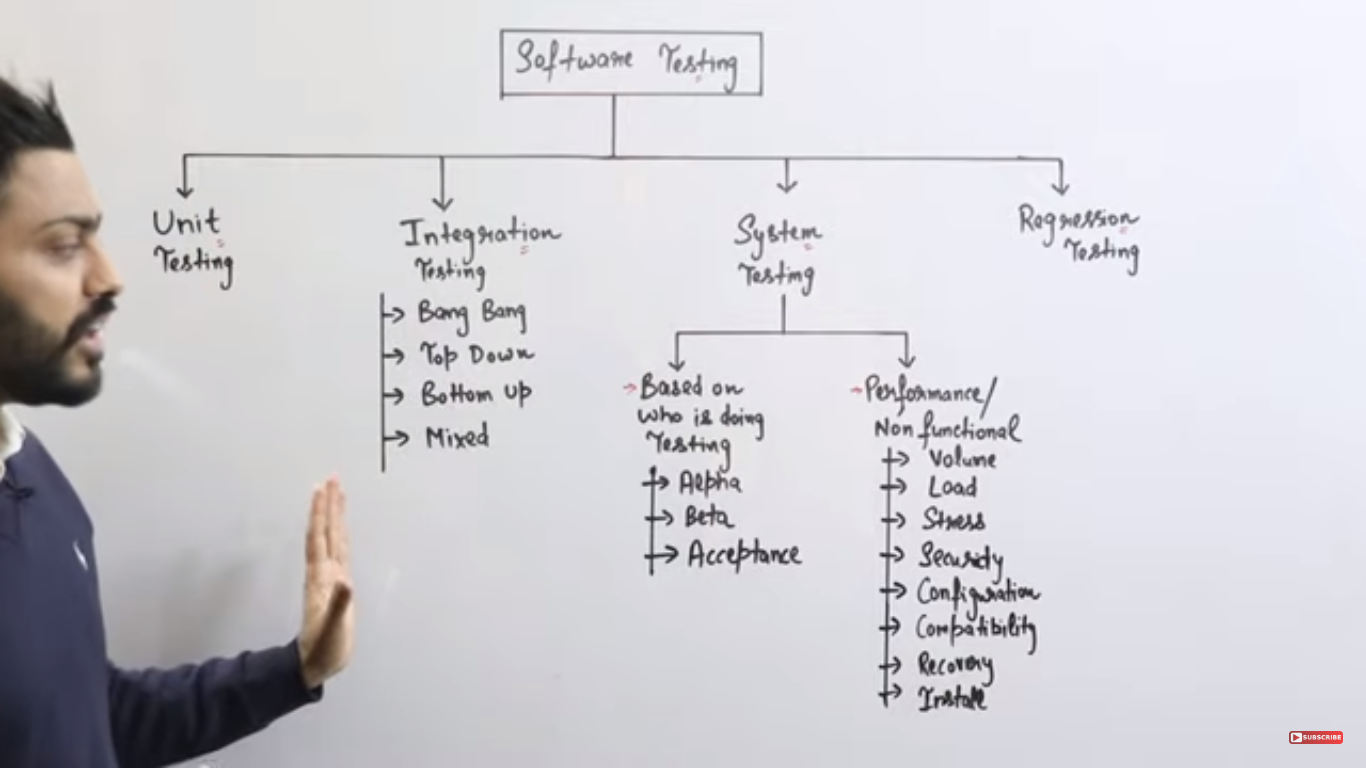 Software Testing
Unit
Testing
Integration
Testing
Bang Bang
Top Down
Bottom up
Mixed
System
Testing
Based on
who is doing
Testing
Alpha
Beta
Acceptance
Performance/
Non functional
Volume
Load
Stress
Security
Configuration
Compatibility
Recovery
Install
Regression
Testing
SUBSCRIBE